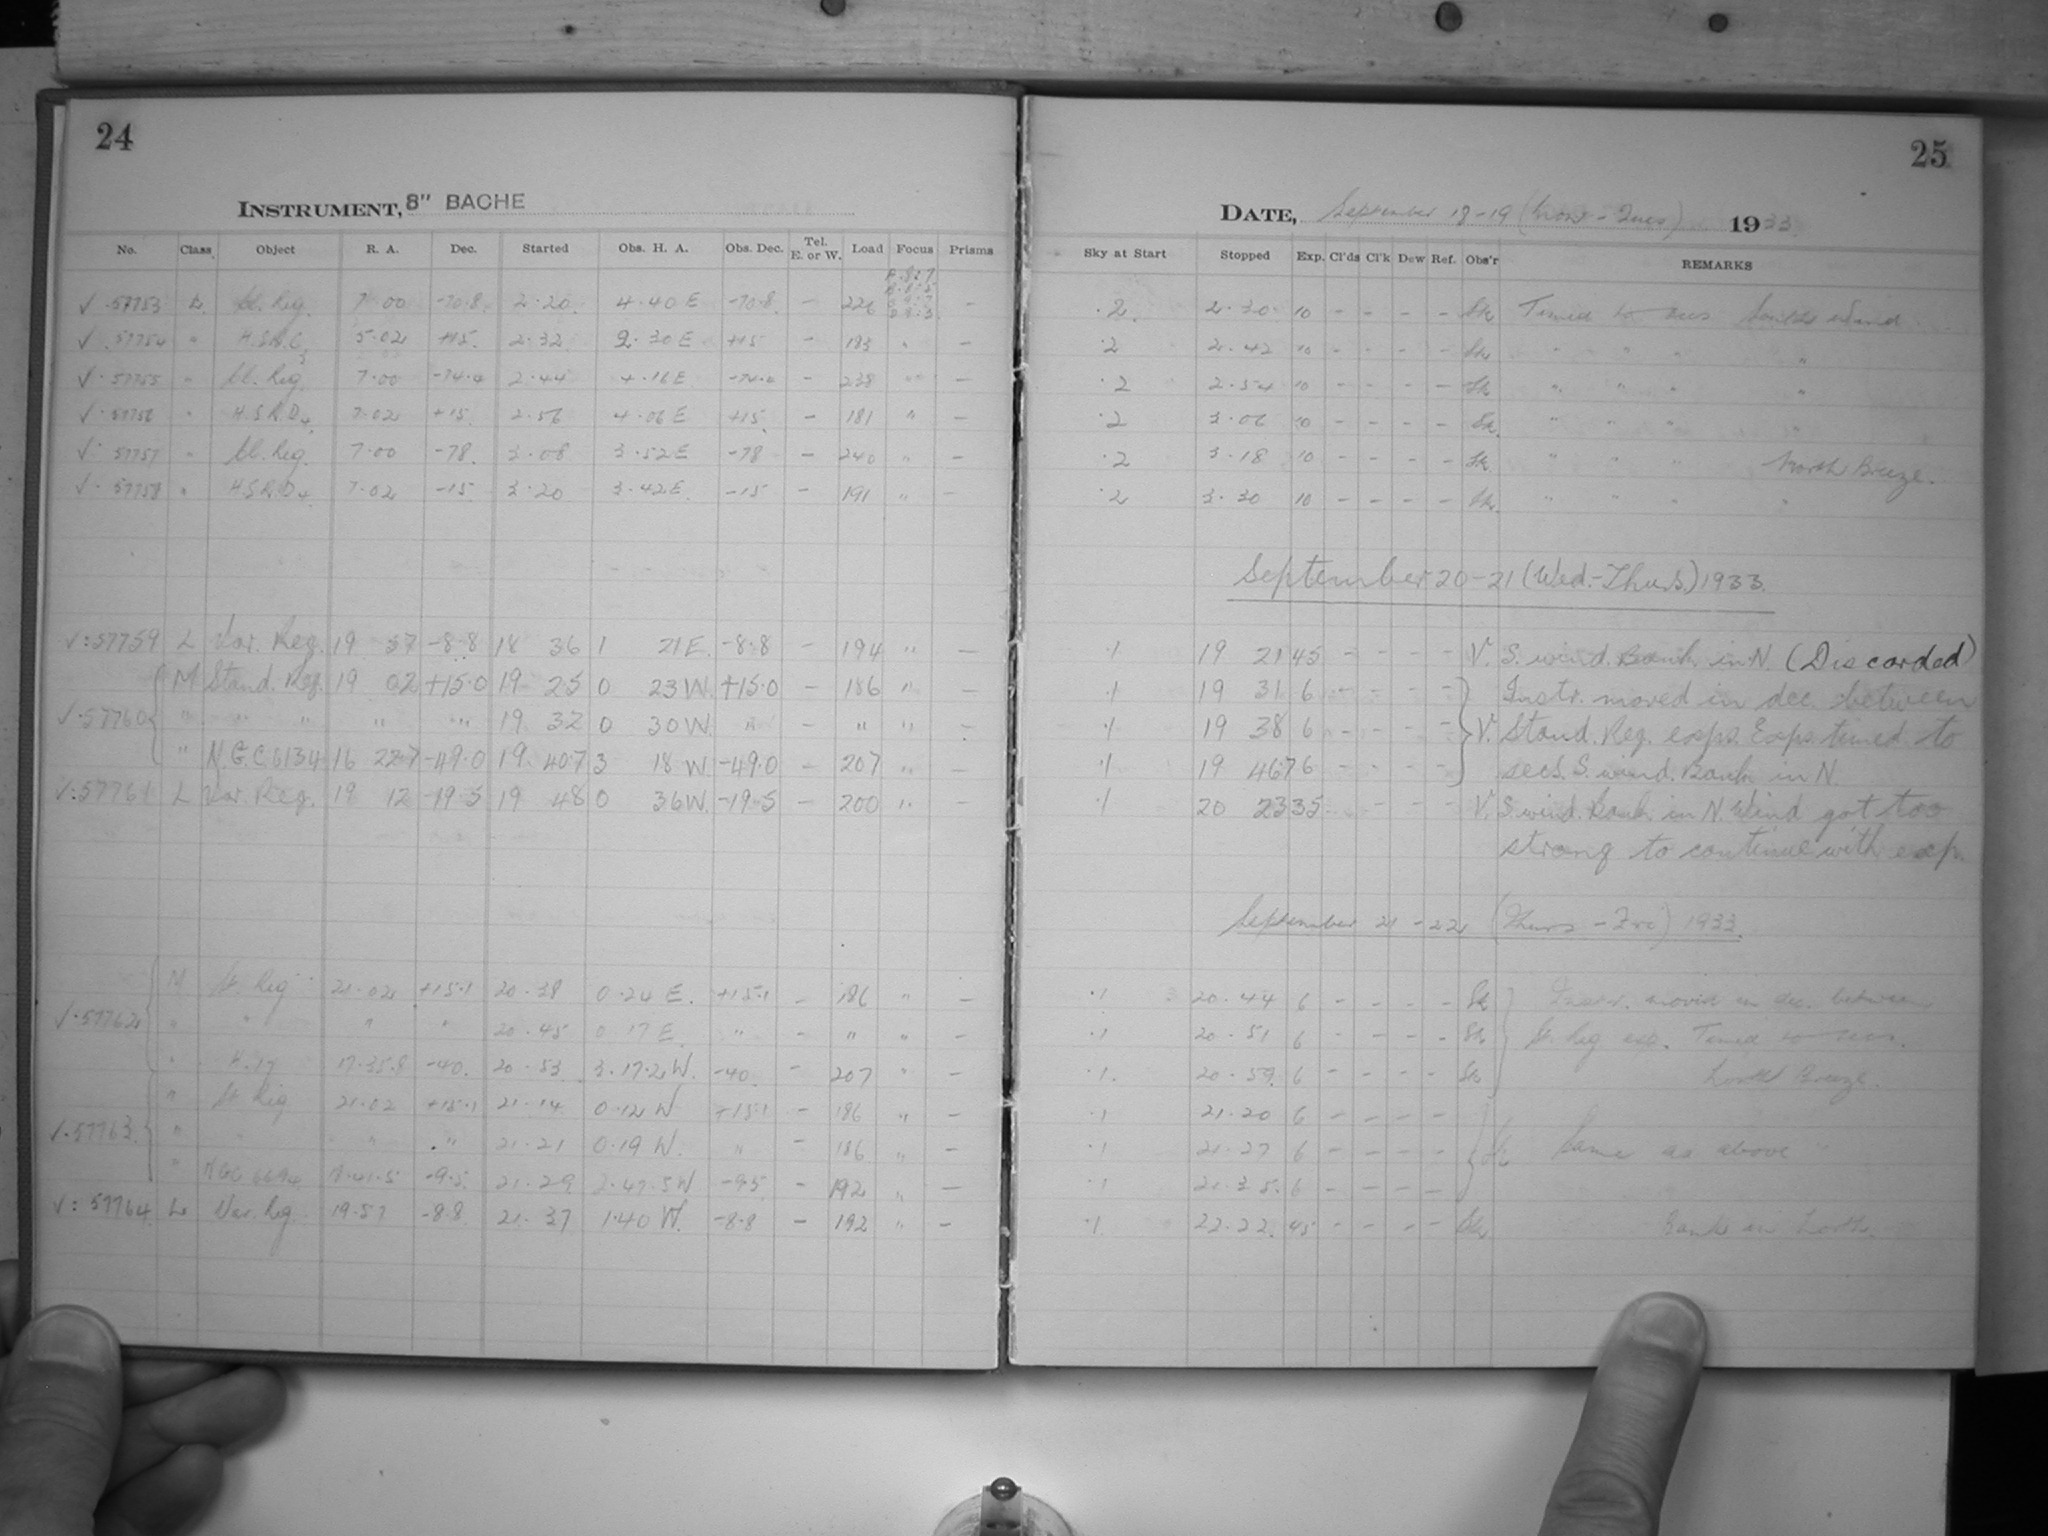 24
INSTRUMENT, 8" BACHE
No. Class Object R. A. Dec. Started Obs. H. A. Obs. Dec. Tel. E. or W. Load Focus Prisms
√ .57753 L. Reg. 7.00 -70.8 2.20 4.40 E -70.8 - 226 -
√ .57754 " H.S.R.C3 5.02 +15. 2.32 2.30 E +15 - 183 " -
√ .57755 " Reg. 7.00 -74.4 2.44 4.16 E -74.4 - 238 " -
√ .57756 " H.S.R.D4 7.02 +15. 2.56 4.06 E +15. - 181 " -
√ .57757 " Reg. 7.00 -78. 3.08 3.52 E -78 - 240 " -
√ .57758 " H.S.R.D4 7.02 -15 3.20 3.42 E. -15 - 191 " -
√ :57759 L Var. Reg. 19 57 -8.8 18 36 1 21 E. -8.8 - 194 " -
M Stand. Reg. 19 02 +15.0 19 25 0 23 W. +15.0 - 186 " -
√ .57760 " " " " " 19 32 0 30 W. " - " " -
" N.G.C.6134 16 22.7 -49.0 19 40.7 3 18 W. -49.0 - 207 " -
√ :57761 L Var. Reg. 19 12 -19.5 19 48 0 36 W. -19.5 - 200 " -
M St. Reg 21.02 +15.1 20.38 0.24 E. +15.1 - 186 " -
√ .57762 " " " " 20.45 0.17 E. " - " " -
" H.17 17.35.8 -40. 20.53 3.17.2 W. -40. - 207 " -
" St. Reg 21.02 +15.1 21.14 0.12 W +15.1 - 186 " -
√ .57763 " " " " 21.21 0.19 W. " - 186 " -
" NGC 6694 18.41.5 -9.5 21.29 2.47.5 W -9.5 - 192 " -
√ : 57764 L. Var. Reg. 19.57 -8.8 21.37 1.40 W. -8.8 - 192 " -
25
DATE, September 18-19 (Mon - Tues) 1933
Sky at Start Stopped Exp. Cl'ds Cl'k Dew Ref. Obs'r REMARKS
.2. 2.30. 10 - - - - Sk Timed to secs South Wind
.2 2.42 10 - - - - Sk " " " "
.2 2.54 10 - - - - Sk " " " "
.2 3.06 10 - - - - Sk. " " " "
.2 3.18 10 - - - - Sk " " " North Breeze.
.2 3.30 10 - - - - Sk. " " " "
September 20-21 (Wed.-Thurs.) 1933.
.1 19 21 45 - - - - V. S. wind. Bank in N. (Discarded)
.1 19 31 6 - - - - Instr. moved in dec. between
.1 19 38 6 - - - - V. Stand. Reg. exps. Exps. timed to
.1 19 46.7 6 - - - - secs. S. wind. Bank in N.
.1 20 23 35 - - - - V. S. wind. Bank in N. Wind got too
strong to continue with exp.
September 21-22 (Thurs - Fri) 1933.
.1 20.44 6 - - - - Sk Instr. moved in dec. between
.1 20.51 6 - - - - Sk St. Reg exp. Timed to secs.
.1. 20.59. 6 - - - - Sk Breeze.
.1 21.20 6 - - - -
.1 21.27 6 - - - - Sk Same as above
.1 21.35. 6 - - - -
.1 22.22. 45 - - - - Sk Bank in North.